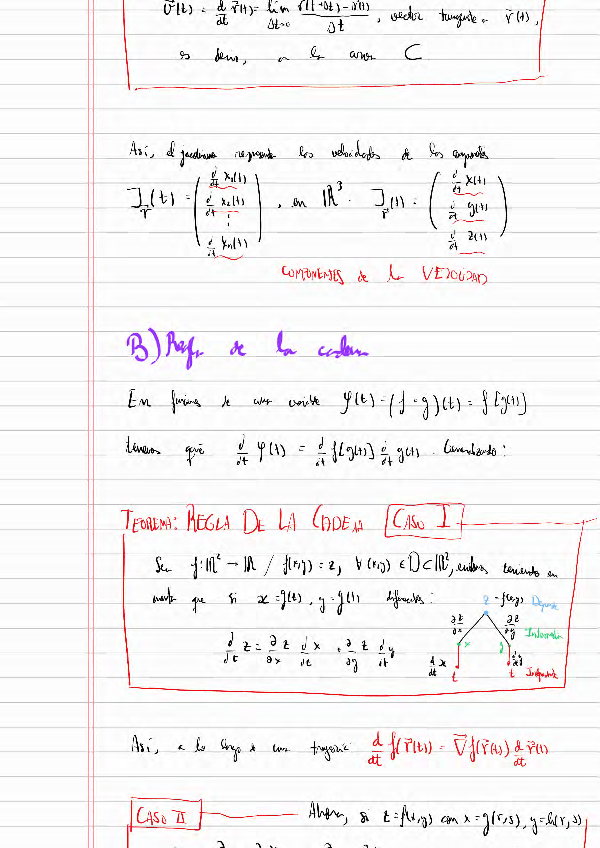 v⃗(t) = d/dt r⃗(t) = lim Δt→0 r⃗(t+Δt) - r⃗(t) / Δt , vector tangente a r⃗(t),
es decir, a la curva C
Así, el jacobiano representa las velocidades de las
J_r⃗(t) = ( d/dt x₁(t) d/dt x₂(t) ⋮ d/dt xₙ(t) ) , en ℝ³ · J_r⃗(t) = ( d/dt x(t) d/dt y(t) d/dt z(t) )
COMPONENTES de la VELOCIDAD
B) Regla de la cadena
En funciones de una variable φ(t) = (f∘g)(t) = f[g(t)]
tenemos que d/dt φ(t) = d/dt f[g(t)] d/dt g(t) . Generalizando:
TEOREMA: REGLA DE LA CADENA CASO I
Sea f: ℝ² → ℝ / f(x,y) = z, ∀ (x,y) ∈ D ⊂ ℝ², entonces teniendo en
cuenta que si x = g(t), y = g(t) diferenciables:
z = f(x,y) Dependiente
∂z/∂x ∂z/∂y
x y Intermedia
d/dt z = ∂/∂x z d/dt x + ∂/∂y z d/dt y
d/dt x d/dt y
t t Independiente
Así, a lo largo de una trayectoria d/dt f(r⃗(t)) = ∇⃗f(r⃗(t)) d/dt r⃗(t)
CASO II Ahora, si z = f(x,y) con x = g(r,s), y = h(r,s)